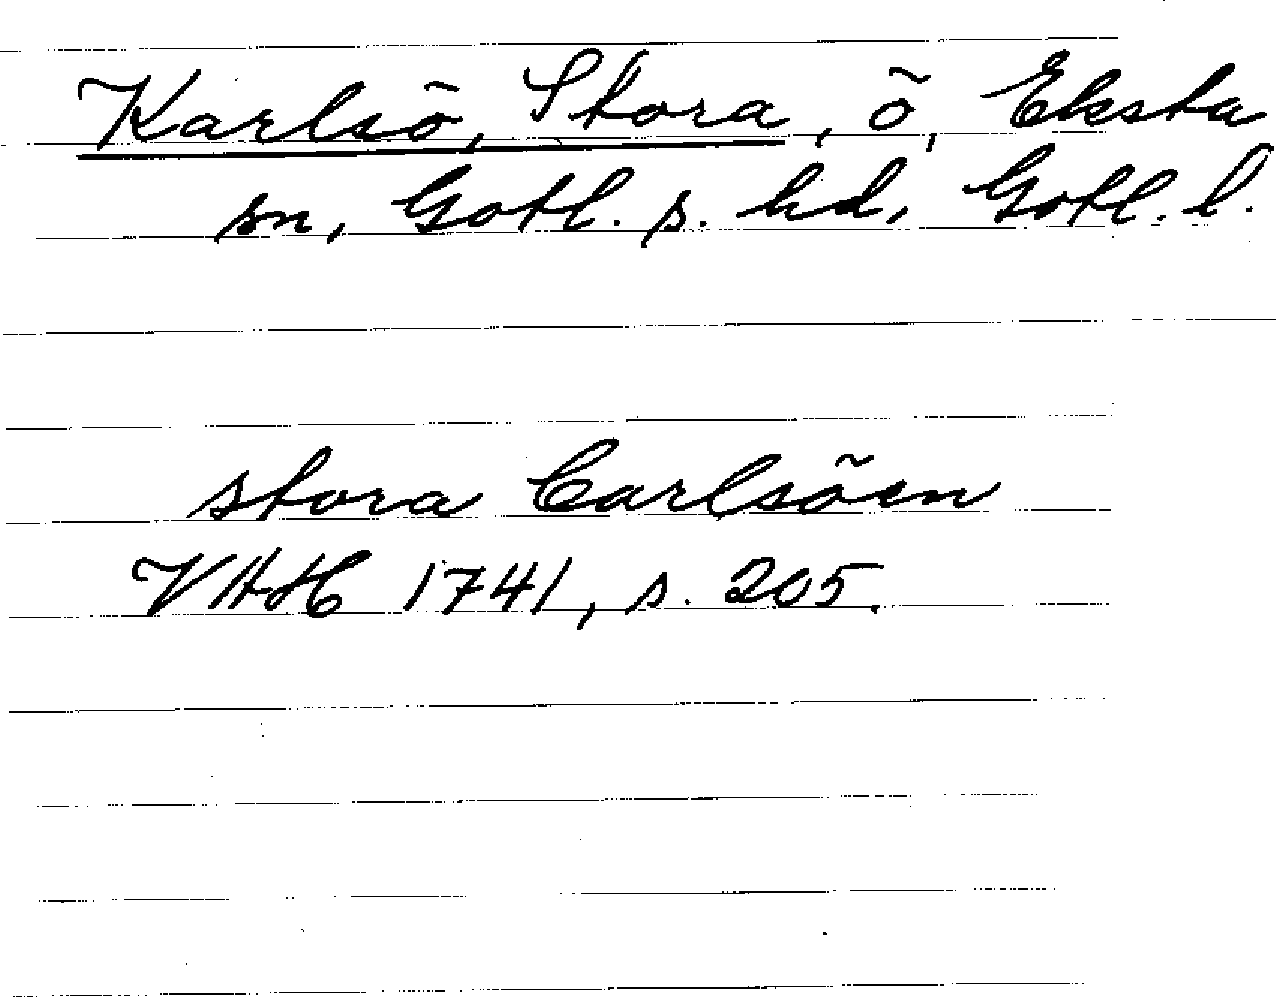 Karlsö, Stora, ö, Eksta
sn, Gotl. s. hd, Gotl. l.
stora Carlsöen
VAH 1741, s. 205.